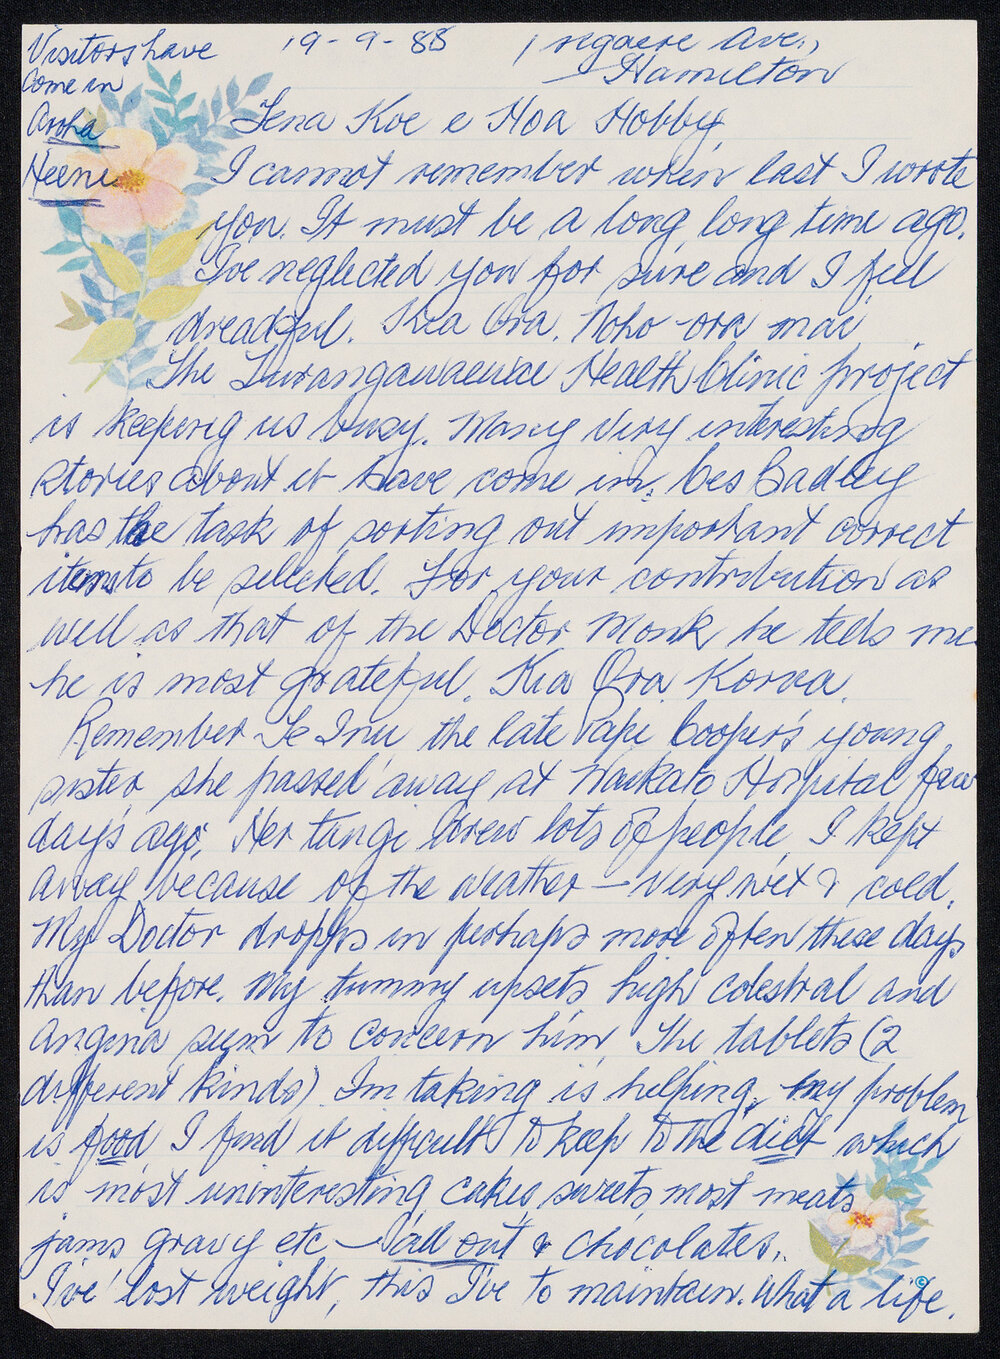 Visitors have
come in
Aroha
Heeni
19-9-88
1 Ngaere Ave.,
Hamilton
Tena Koe e Hoa Hobby
I cannot remember when last I wrote
you. It must be a long, long time ago.
I've neglected you for sure and I feel
dreadful. Kia Ora. Noho ora mai
The Turangawaewae Health Clinic project
is keeping us busy. Many very interesting
stories about it have come in. Des Badley
has the task of sorting out important correct
items to be selected. For your contribution as
well as that of the Doctor Monk he tells me
he is most grateful. Kia Ora Korua.
Remember Te Inu the late Pape Cooper's young
sister, she passed away at Waikato Hospital few
days ago. Her tangi drew lots of people. I kept
away because of the weather — very wet & cold.
My Doctor dropps in perhaps more often these days
than before. My tummy upsets high colestral and
Angina seem to concern him. The tablets (2
different kinds) I'm taking is helping. My problem
is food I find it difficult to keep to the diet which
is most uninteresting, cakes, sweets, most meats
jams, gravy etc — all out & chocolates..
I've lost weight, this I've to maintain. What a life.
©